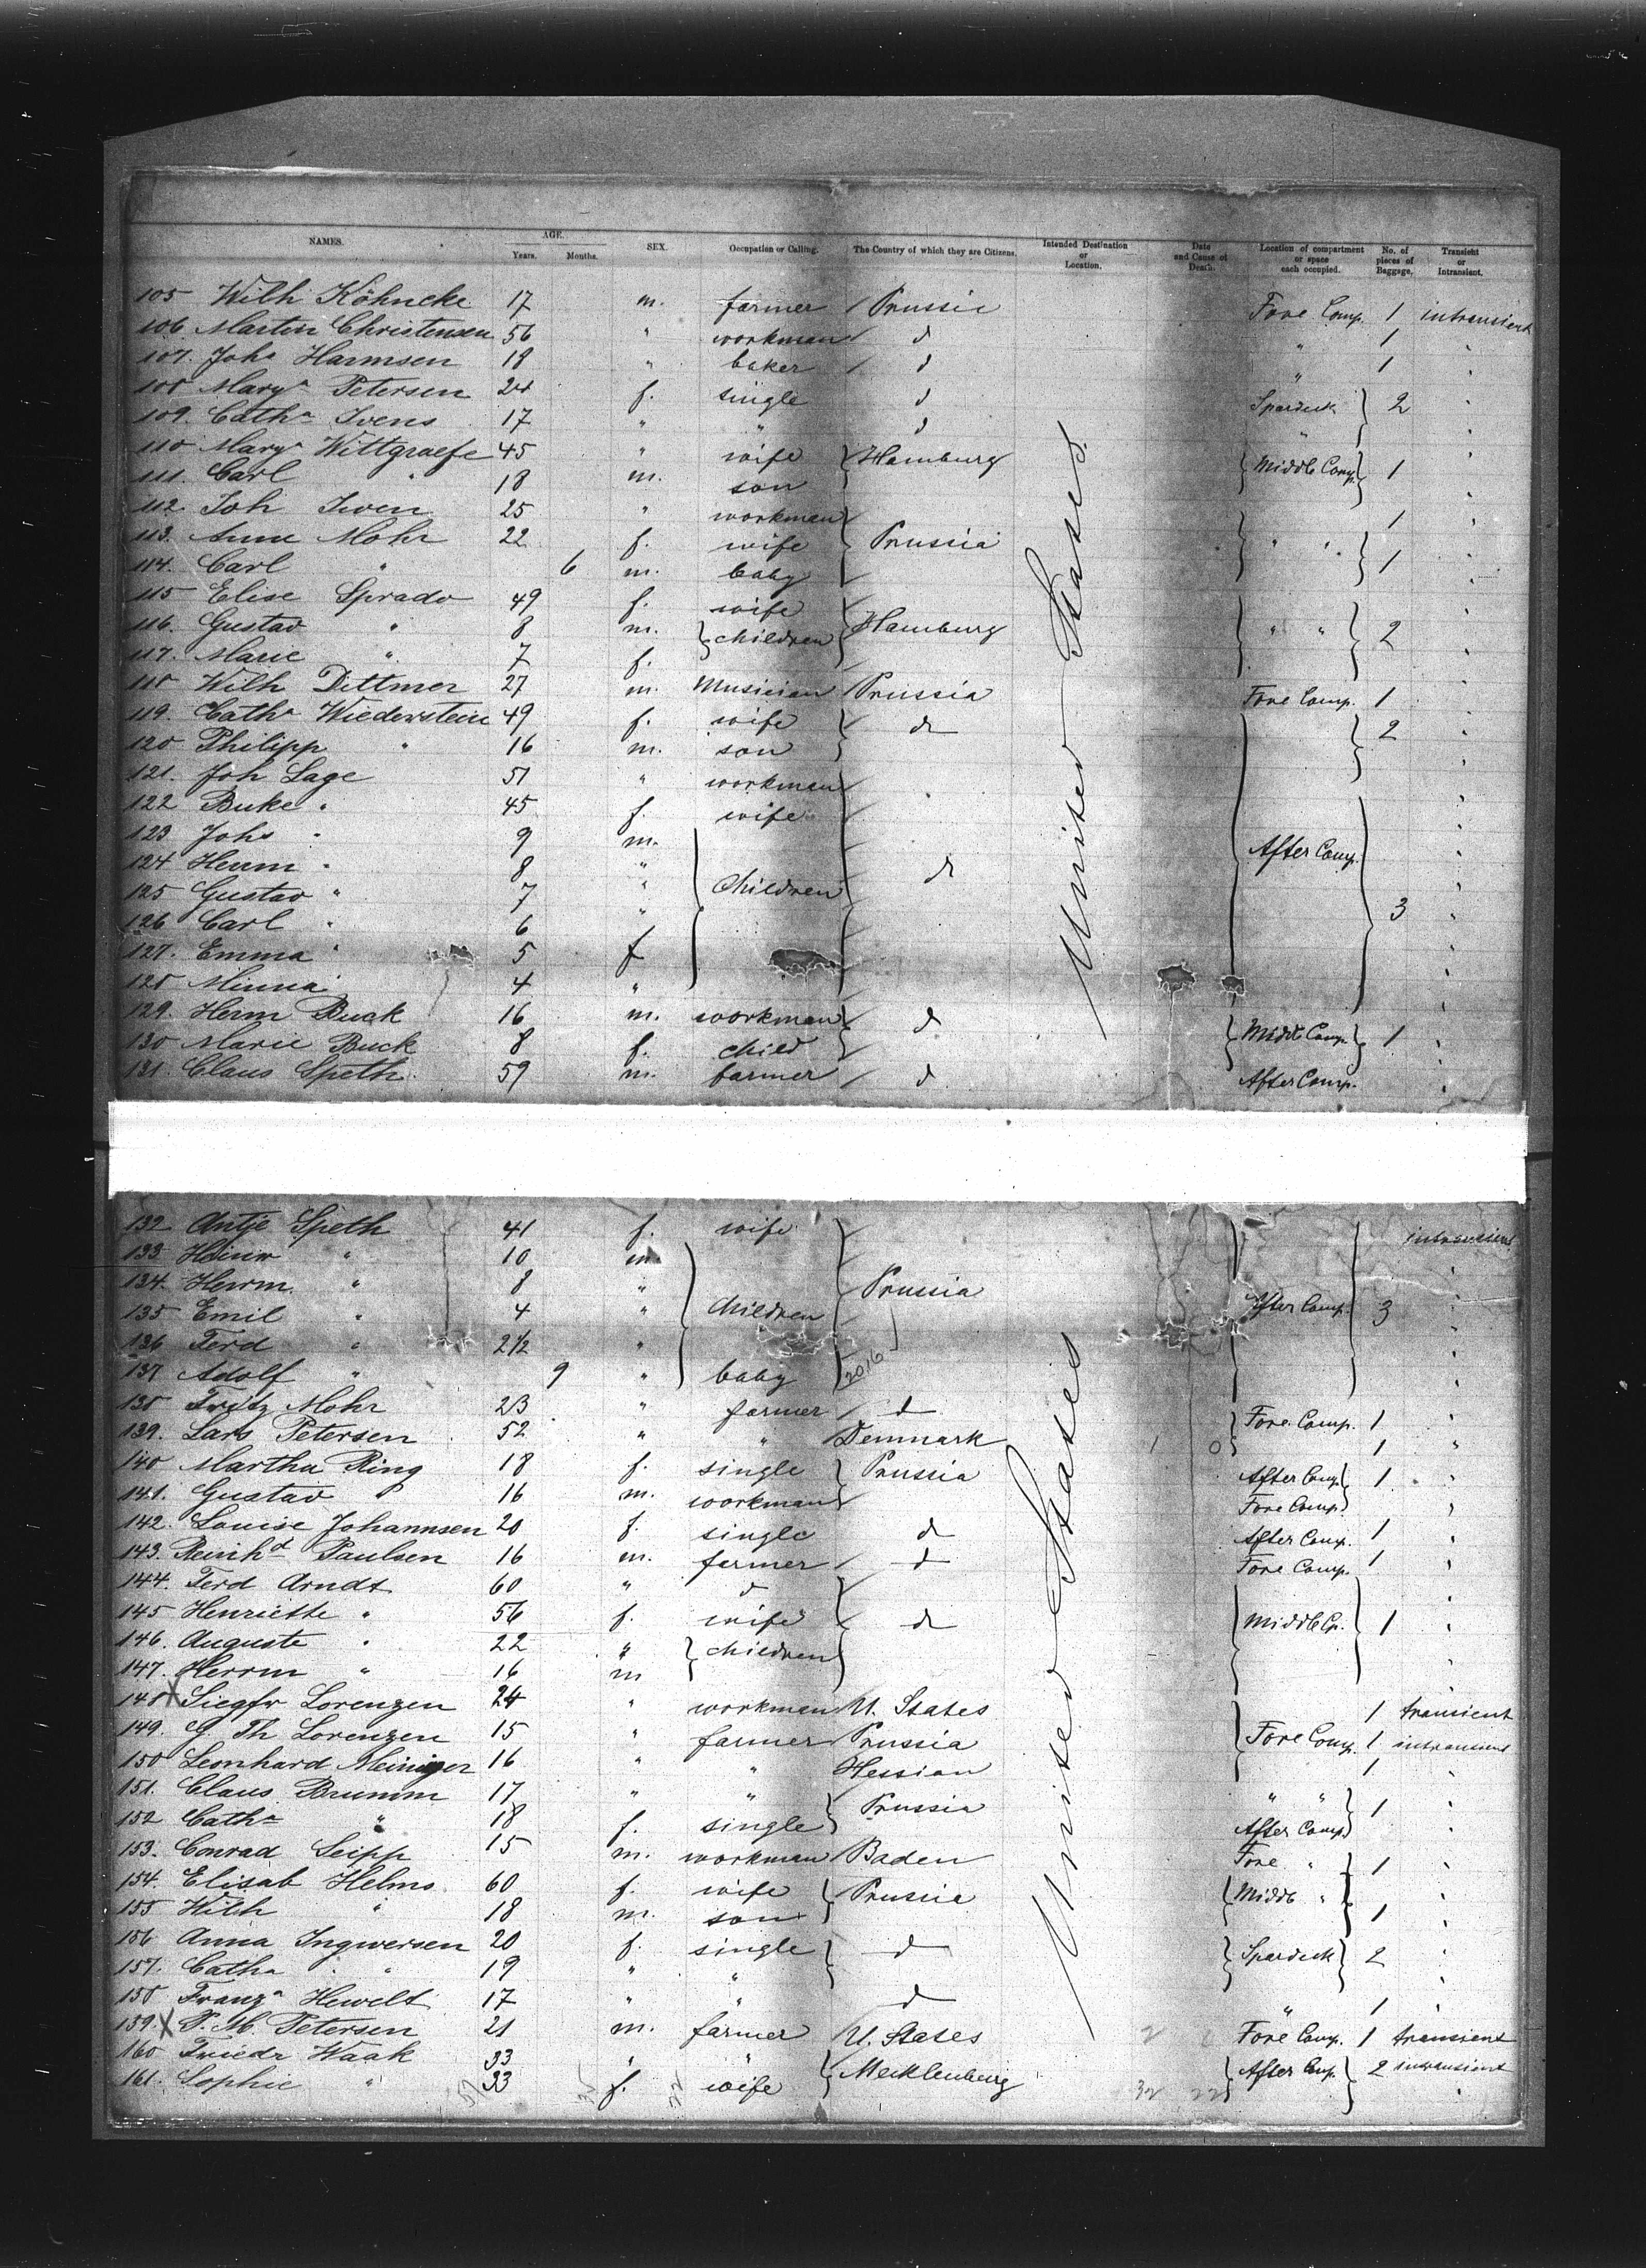 NAMES. AGE. Years. Months. SEX. Occupation or Calling. The Country of which they are Citizens. Intended Destination or Location. Date and Cause of Death. Location of compartment or space each occupied. No. of pieces of Baggage. Transient or Intransient.
105 Wilh Köhncke 17 m. farmer / Prussia Fore Comp. 1 intransient
106 Martin Christensen 56 " workman / d " 1 "
107. Joh^s Harmsen 18 " baker / d " 1 "
108 Marg^a Petersen 24 f. single d Spardeck } 2 "
109. Cath^a Ivens 17 " " d " "
110 Marg^a Wittgraefe 45 " wife } Hamburg { Middle Comp. } 1 "
111. Carl " 18 m. son "
112. Joh Iwen 25 " workman / 1 "
113. Anna Mohr 22 f. wife } Prussia { " " } 1 "
114. Carl " 6 m. baby "
115 Elise Sprado 49 f. wife } Hamburg { " " } 2 "
116. Gustav " 8 m. } children "
117. Marie " 7 f. "
118 Wilh Dittmer 27 m. Musician / Prussia Fore Comp. 1 "
119. Cath^a Wiederstein 49 f. wife } d 2 "
120 Philipp " 16 m. son "
121. Joh Lage 51 " workman "
122 Buke " 45 f. wife "
123 Joh^s " 9 m. "
124 Herrm " 8 " d After Comp. "
125 Gustav " 7 " Children "
126 Carl " 6 " 3 "
127. Emma " 5 f "
128 Minna " 4 " "
129. Herm Buck 16 m. workman } d { Middl Comp. } 1 "
130 Marie Buck 8 f. child "
131. Claus Speth 59 m. farmer / d After Comp. "
132 Antje Speth 41 f. wife intransient
133 Heinr " 10 m "
134. Herrm. " 8 " Prussia "
135 Emil " 4 " Children After Comp. 3 "
136 Ferd " 2 1/2 " "
137 Adolf " 9 " baby 2016 "
138 Fritz Mohr 23 " farmer / d Fore Comp. 1 "
139. Lars Petersen 52 " " Denmark 1 0 1 "
140 Martha Ring 18 f. single } Prussia After Comp. } 1 "
141. Gustav " 16 m. workman Fore Comp. "
142. Louise Johannsen 20 f. single d After Comp. 1 "
143. Reinh^d Paulsen 16 m. farmer / d Fore Comp. 1 "
144. Ferd Arndt 60 " d "
145 Henriette " 56 f. wife } d { Middle Cp. } 1 "
146. Auguste " 22 " } children "
147. Herrm " 16 m "
148 X Siegfr Lorenzen 24 " workman U. States 1 transient
149. G. Th Lorenzen 15 " farmer Prussia Fore Comp. 1 intransient
150 Leonhard Meininger 16 " " Hessian 1 "
151. Claus Brumm 17 " " } Prussia " " } 1 "
152 Cath^a " 18 f. single After Comp. "
153. Conrad Seipp 15 m. workman Baden Fore " 1 "
154. Elisab Helms 60 f. wife } Prussia { Middl " "
155 Wilh " 18 m. son 1 "
156 Anna Ingwersen 20 f. single } d { Spardeck } 2 "
157. Cath^a " 19 " " "
158 Franz^a Hewelt 17 " " d " 1 "
159. X P. M. Petersen 21 m. farmer U. States 2 Fore Comp. 1 transient
160 Friedr Waak 33 " " } Mecklenburg { After Cmp. } 2 intransient
161. Sophie " 33 f. wife 32 22 "
United States
United States